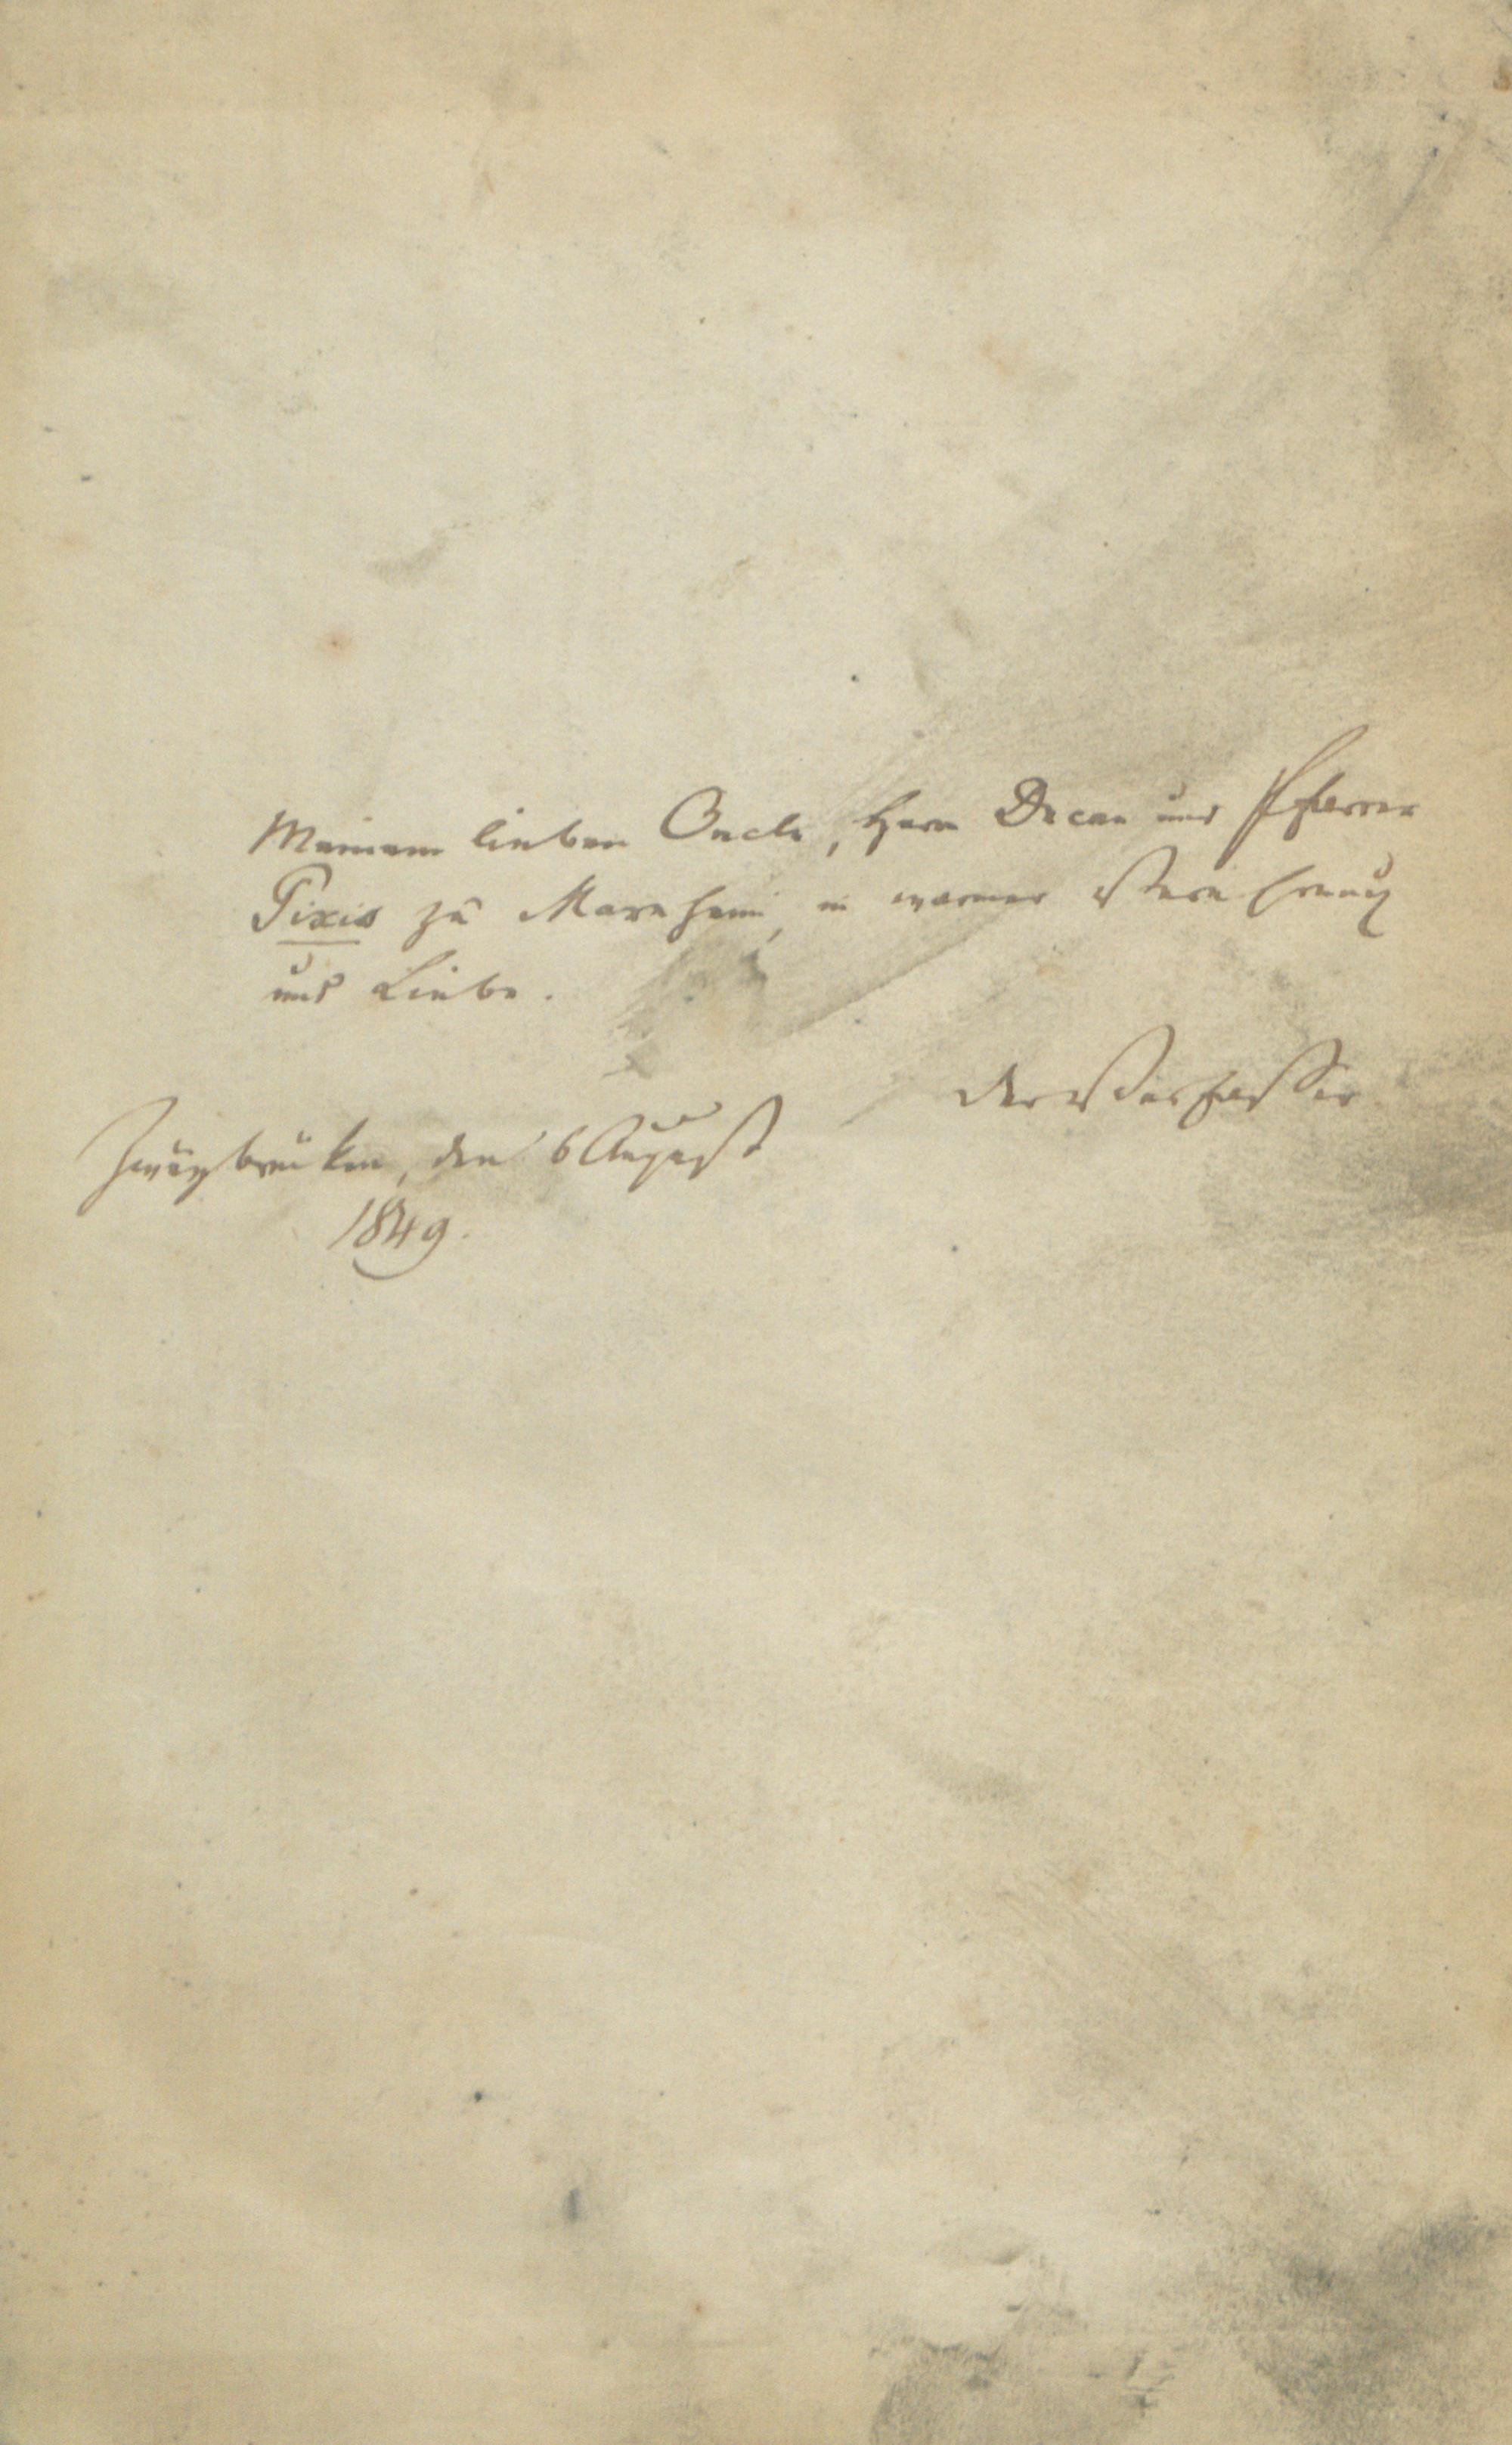 Meinem lieben Oncle, Herrn Decan und Pfarrer
Pixis zu Marnheim, in warmer Verehrung
und Liebe.
Der Verfasser
Zweybrücken, den 6 August
1849.